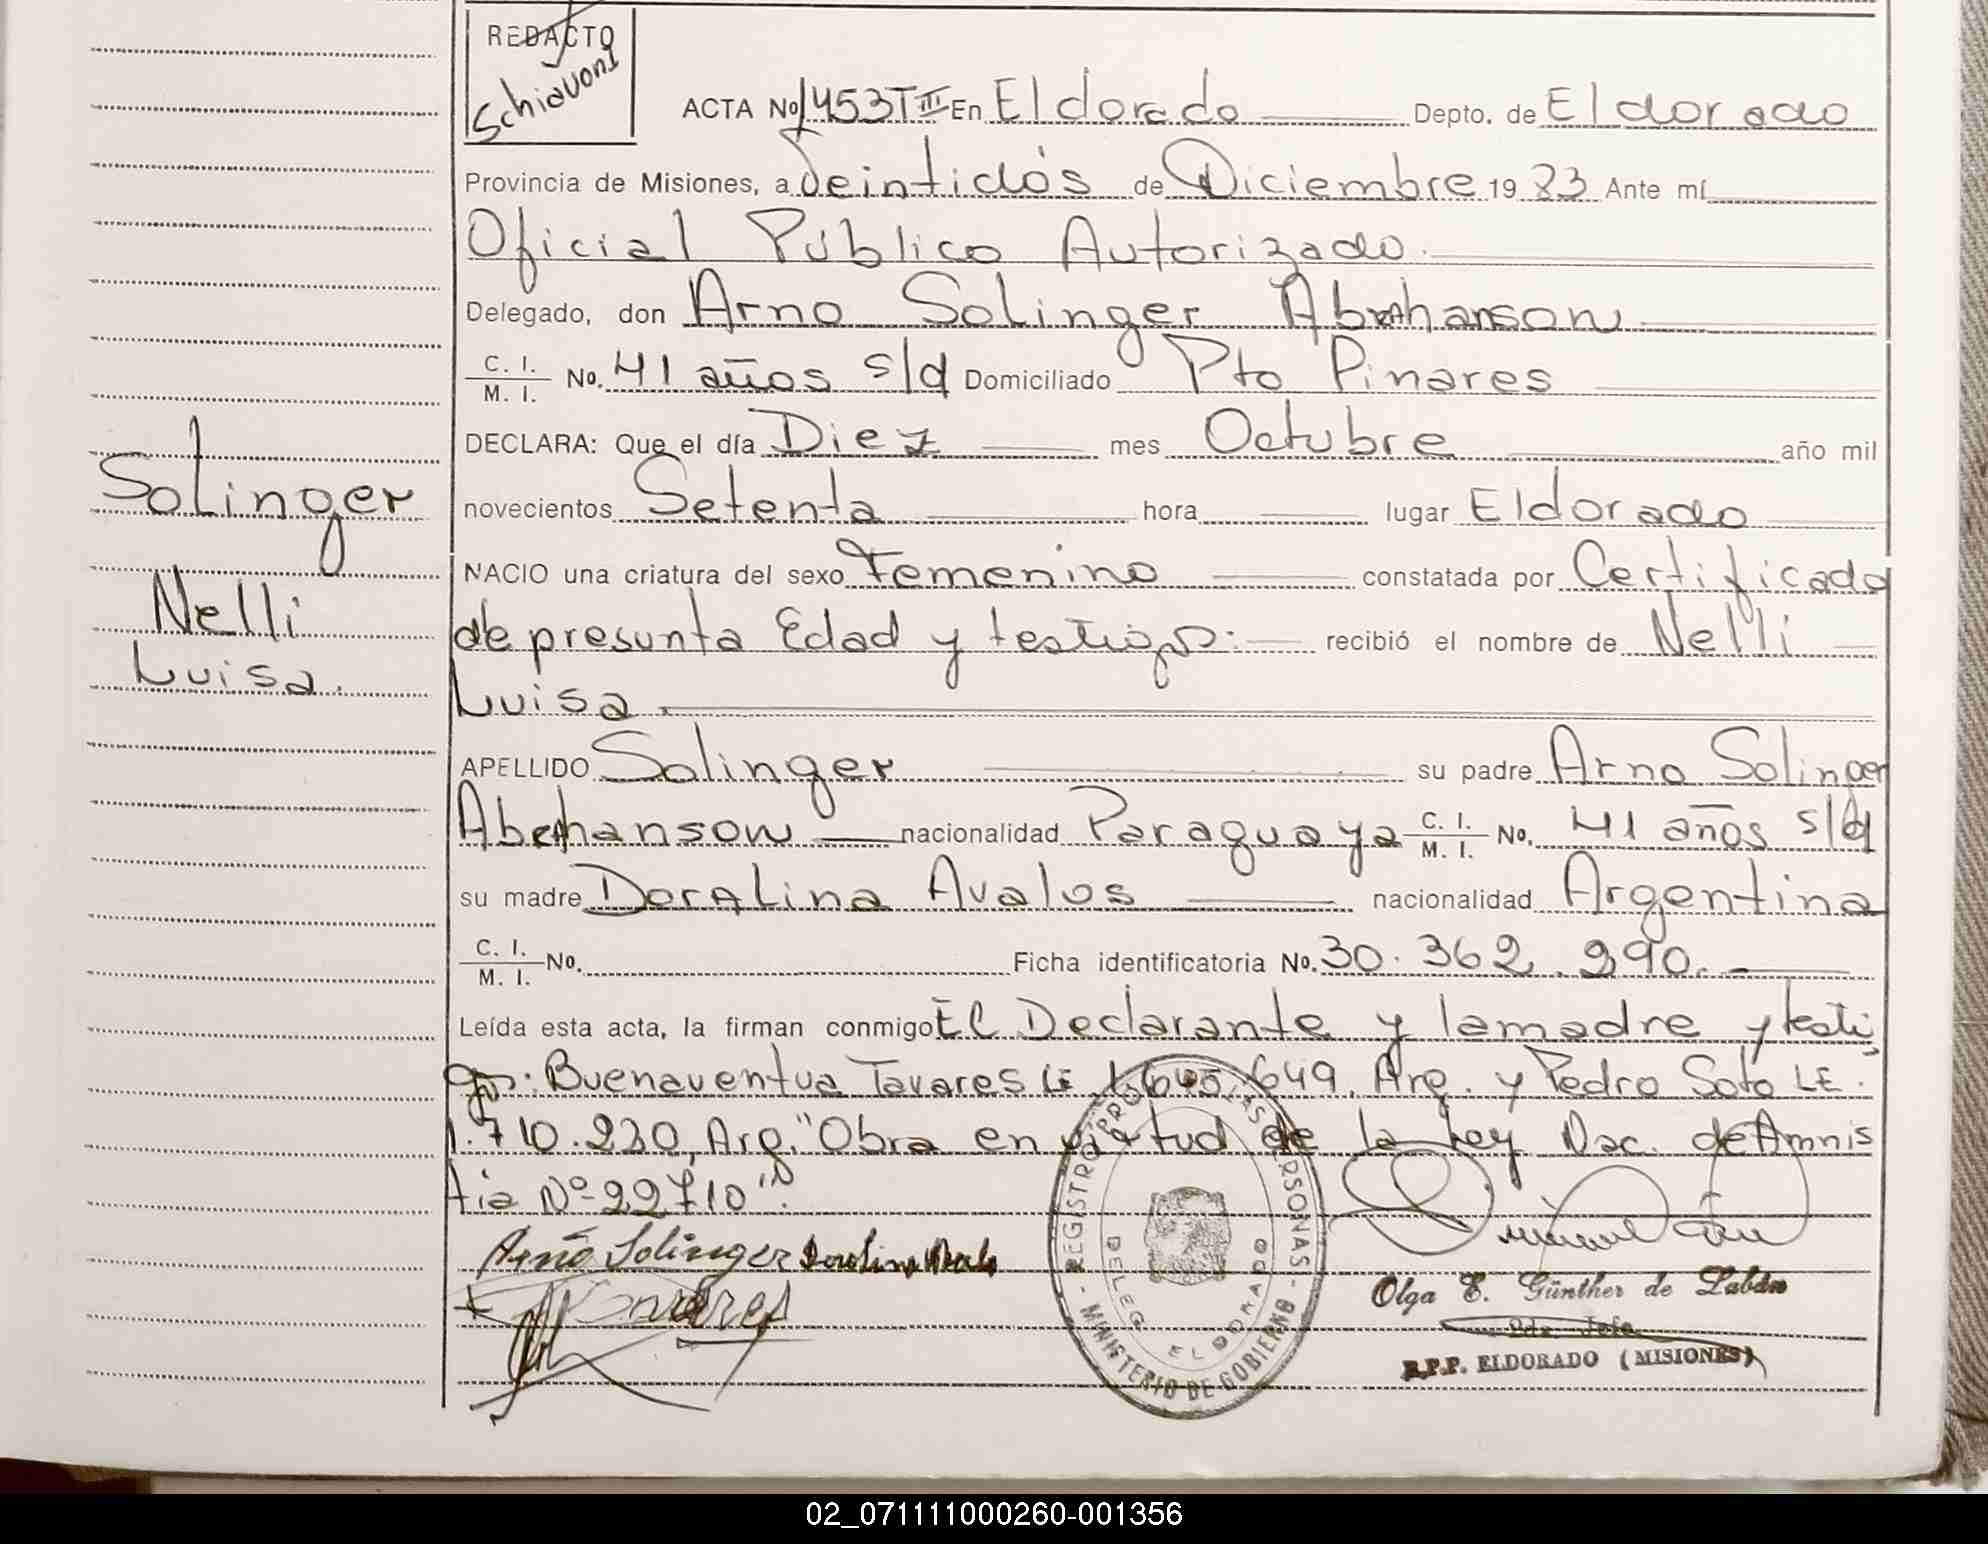 REDACTO
Schiavoni
ACTA No 1453 T III En Eldorado Depto. de Eldorado
Provincia de Misiones, a Veintidós de Diciembre 1983 Ante mí
Oficial Público Autorizado.
Delegado, don Arno Solinger Abrahanson
C. I. / M. I. No. 41 años s/d Domiciliado Pto Pinares
DECLARA: Que el día Diez mes Octubre año mil
novecientos Setenta hora lugar Eldorado
NACIO una criatura del sexo Femenino constatada por Certificado
de presunta Edad y testigos: recibió el nombre de Nelli
Luisa.
APELLIDO Solinger su padre Arno Solinger
Abrahanson nacionalidad Paraguaya C. I. / M. I. No. 41 años s/d
su madre Doralina Avalos nacionalidad Argentina
C. I. / M. I. No. Ficha identificatoria No. 30.362.290.
Leída esta acta, la firman conmigo El Declarante y la madre y testi
gos: Buenaventua Tavares LE 1.645.649. Arg. y Pedro Soto LE.
1.710.230, Arg. "Obra en virtud de la Ley Nac. de Amnis
tia Nº 22710".
Solinger
Nelli
Luisa.
Arno Solinger Doralina Avalo
Tavares
REGISTRO PERSONAS - MINISTERIO DE GOBIERNO -
DELEG. ELDORADO
Olga E. Günther de Labán
R.P.P. ELDORADO (MISIONES)
02_071111000260-001356